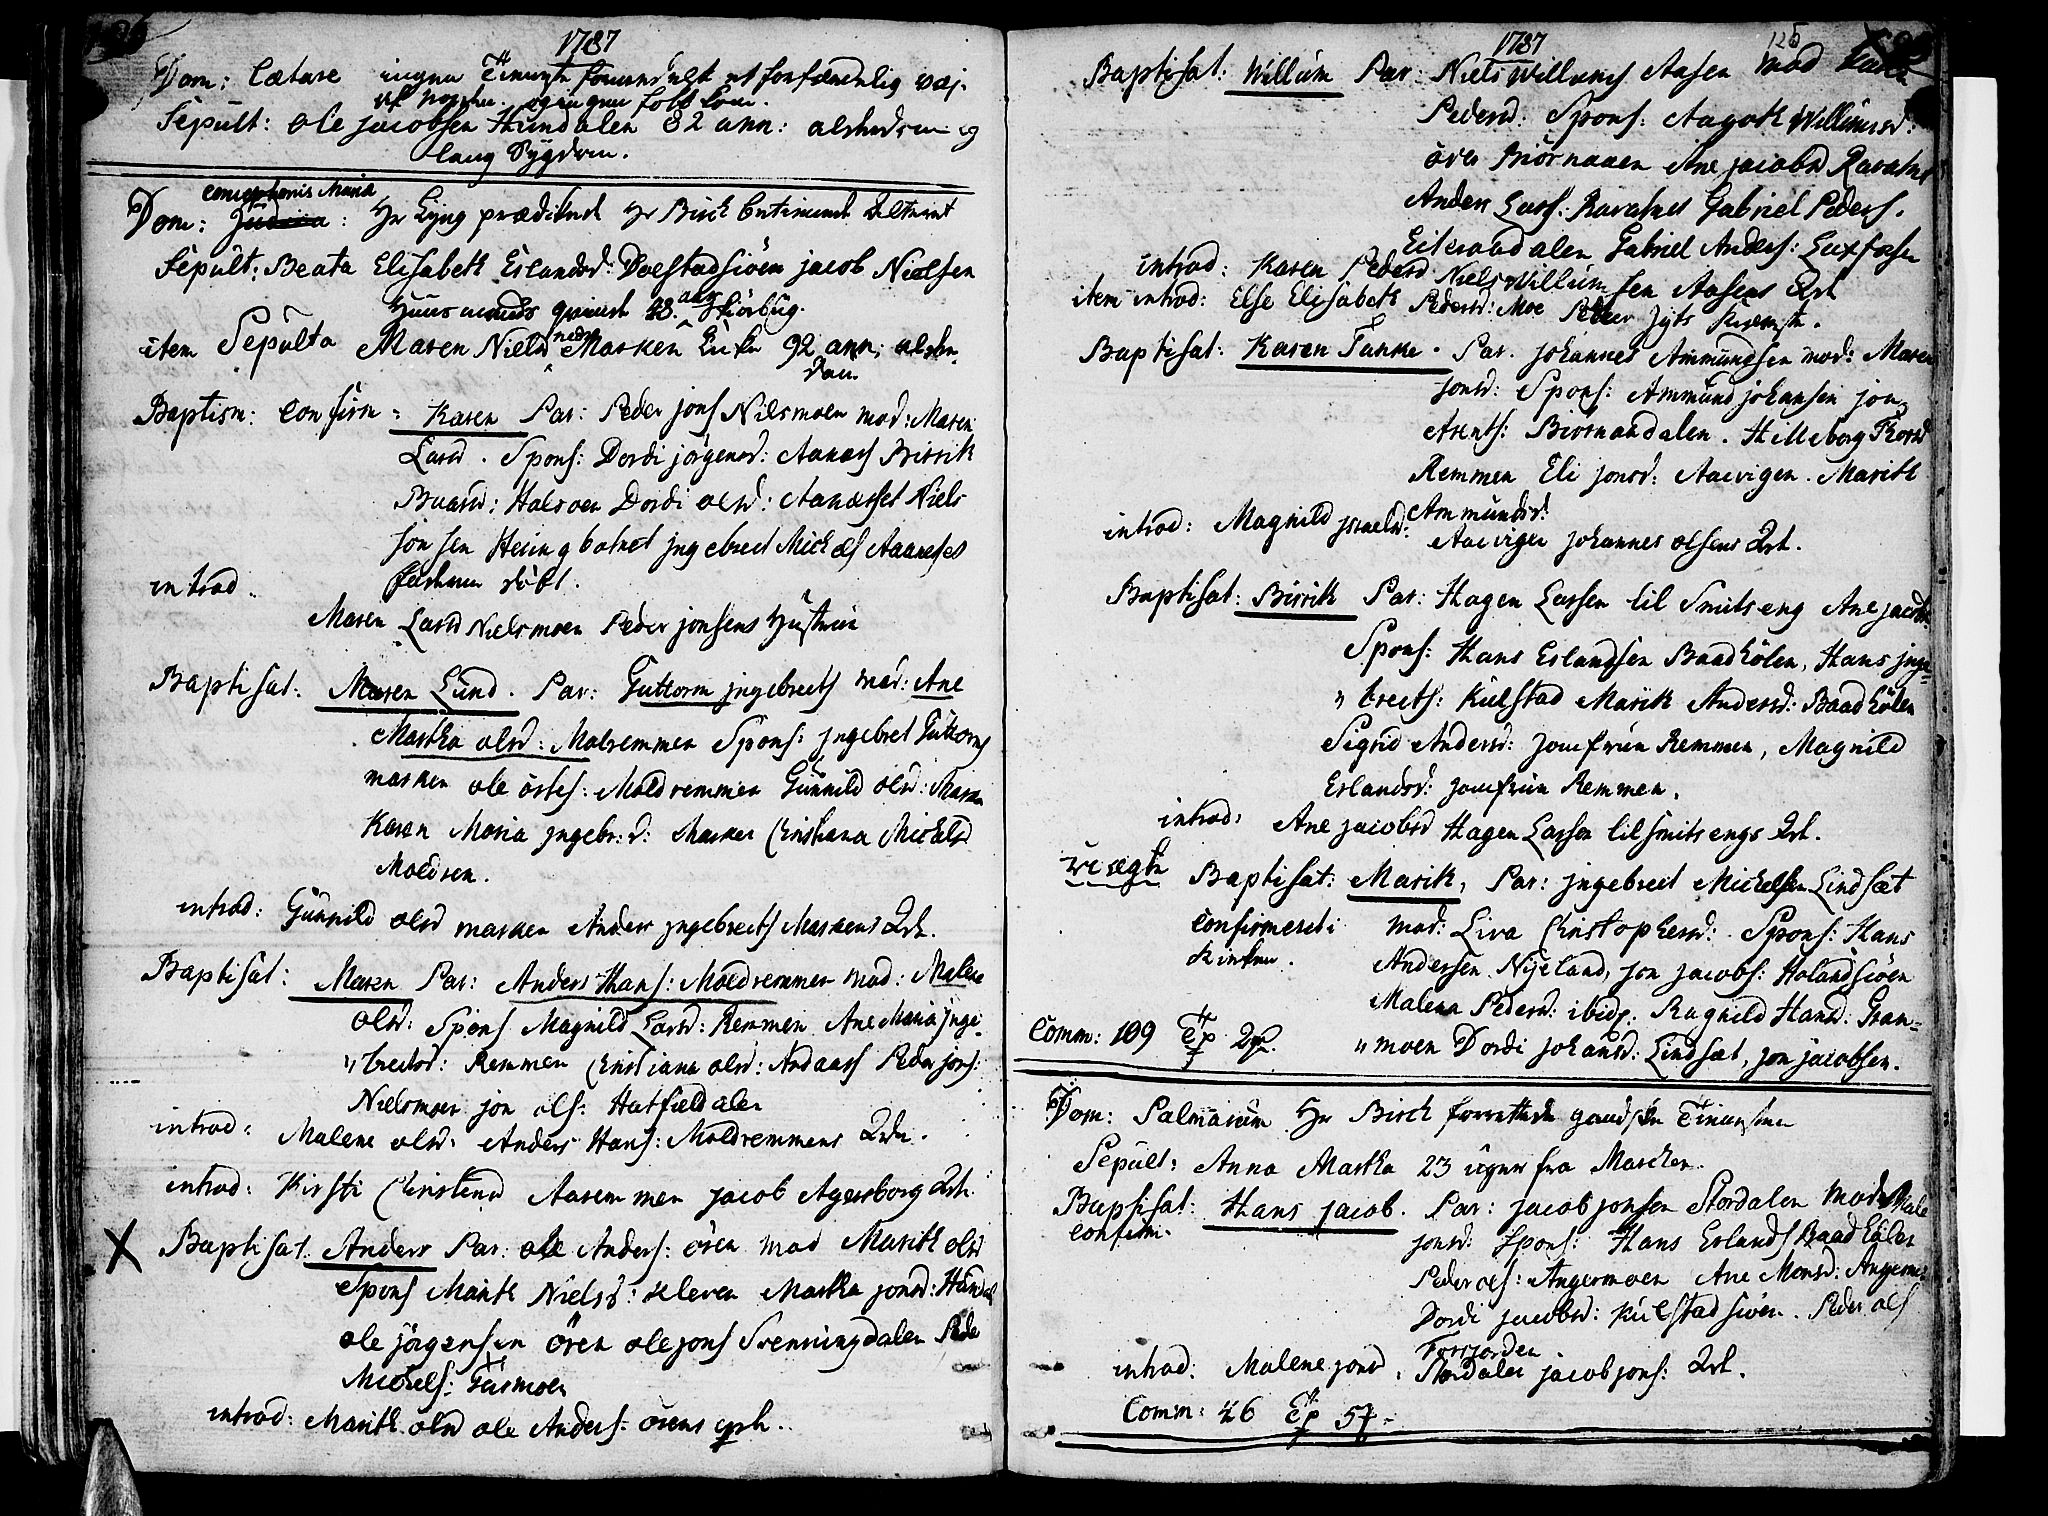 1787
Dom: Lætare ingen
af folk kom.
Sepult: Ole Jacobsen Hundalen 82 ann: alderdom og
lang Sygdom.
conceptionis Maria
Dom: Judica: Hr Lyng prædikede Hr Birch betiente Alteret
Sepult: Beata Elisabeth Erlandsd: Dolstadsiöen jacob Nielsen
Huusmands qvinde 28. aar Skiörbug.
item Sepulta Maren Nielsd nedre Marken 92 ann: alder-
dom
Baptism: confirm: Karen Par: Peder jons Nielsmoen mod: Maren
Larsd. Spons: Dordi jörgensd: Aanæss Birrith
Halsøen Dordi olsd: Aanæsset Niels
jonsen Heringbotnet jngebrect Mich: Aanæsset
hiemme döbt.
introd.
Maren Larsd Nielsmoen Peder jonsens Hustrue
Baptisat: Maren Lund. Par: Guttorm jngebrects mod: Ane
Martha olsd: Molremmen Spons: jngebret Guttorms
marken ole östes: Moldremmen Gunnild olsd: Marken
Karen Maria jngebr: d: Marken Christiana Michelsd
Moldrem.
introd: Gunnild olsd marken Anders jngebrects Markens Qde.
Baptisat: Maren Par: Anders Hans: Moldremmen mod: Malene
olsd: Spons Magnild Larsd: Remmen Ane Maria jnge-
" brectsd: Remmen Christiana olsd: Andaass Peder jons:
Nielsmoen jon ols: Hatfieldalen
introd: Malene olsd: Anders Hans: Moldremmens Qde.
introd: Kirsti Christensd Aaremmen jacob Agersborg Qde.
X Baptisat: Anders Par: ole Anders: ören mod Marith olsd
Spons Marith Nielsd: Kleven Martha jonsd: Hundal
ole jörgensen ören ole jons Svenningdalen Peder
Michels: Fusmoen
introd: Marith olsd ole Anders: örens
1787
125
Baptisat: Willum Par: Niels Willums Aasen mod Karen
Pedersd: Spons: Aagoth Willumsd:
över Biörnaaen Ane jacobsd Ravatnet
Anders Lars: Ravatnet Gabriel Peders.
Eiteraadalen Gabriel Anders: Luxfosen
introd: Karen Pedersd Niels Willumsen Aasens Qde
item introd: Else Elisabeth Pedersd: Moe
Baptisat: Karen Tanke. Par. johannes Ammundsen mod: Maren
jonsd: Spons: Ammund johansen jon
Arents: Biornaadalen. Hilleborg Thorsd
Remmen Eli jonsd: Aaevigen. Marith
Ammundsd:
introd: Magnild jsraelsd: Aaevigen johannes olsens Qde.
Baptisat: Birrith Par: Hagen Larsen lil Smitseng Ane jacobsd:
Spons: Hans Erlandsen Baadhölen, Hans jnge-
" brects: Kulstad Marith Andersd: Baadhölen
Sigrid Andersd: jomfrue Remmen, Magnild
Erlandsd: jomfrue Remmen.
introd: Ane jacobsd Hagen Larsen lilsmitsengs Qde.
uægte Baptisat: Marith, Par: jngebrect Michelsen Lindsæt
confirmeret i mod: Liva Christophersd: Spons: Hans
kirken. Andersen Nyeland, jon jacobs: Holandsiöen
Malena Pedersd: ibid. Ragnild Hansd: Gran-
" moen Dordi johansd: Lindsæt, jon jacobsen.
Comm: 109
Dom: Palmarum Hr Birch forrettede gandske Tienesten
Sepult: Anna Martha 23 uger fra Marken.
Baptisat: Hans jacob. Par: jacob jonsen Stordalen mod Male
confirm. jonsd: Spons: Hans Erlands Baadhölen
Peder ols: Angermoen Ane Monsd: Angermoe
Dordi jacobsd: Kulstadsiöen. Peder ols
Forsjorden.
introd: Malene jonsd Stordalen jacob jons: Qde.
Comm: 46